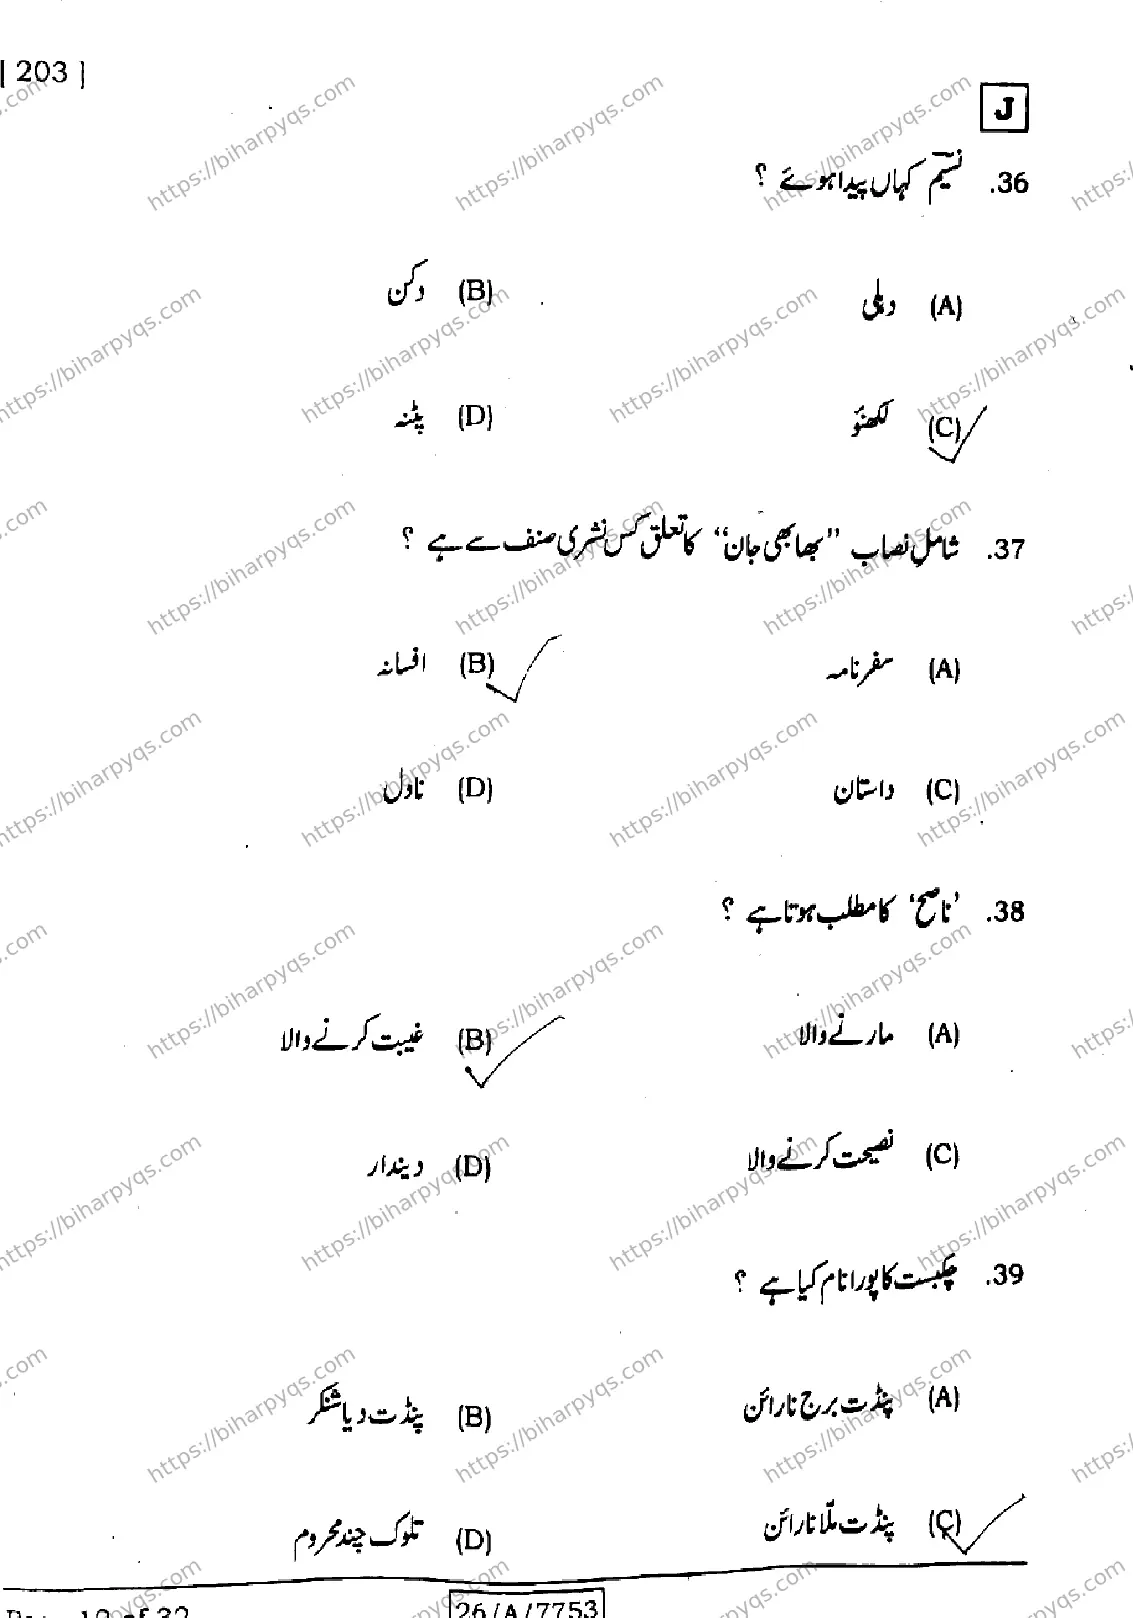 [ 203 ]
J
36. نسیم کہاں پیدا ہوئے ؟
(A) دہلی (B) دکن
(C) لکھنؤ (D) پٹنہ
37. شامل نصاب ”بھابھی جان“ کا تعلق کس نشری صنف سے ہے ؟
(A) سفرنامہ (B) افسانہ
(C) داستان (D) ناول
38. ’ناصح‘ کا مطلب ہوتا ہے ؟
(A) مارنے والا (B) غیبت کرنے والا
(C) نصیحت کرنے والا (D) دیندار
39. چکبست کا پورا نام کیا ہے ؟
(A) پنڈت برج نارائن (B) پنڈت دیا شنکر
(C) پنڈت ملّا نارائن (D) تلوک چند محروم
26/A/7753
https://biharpyqs.com